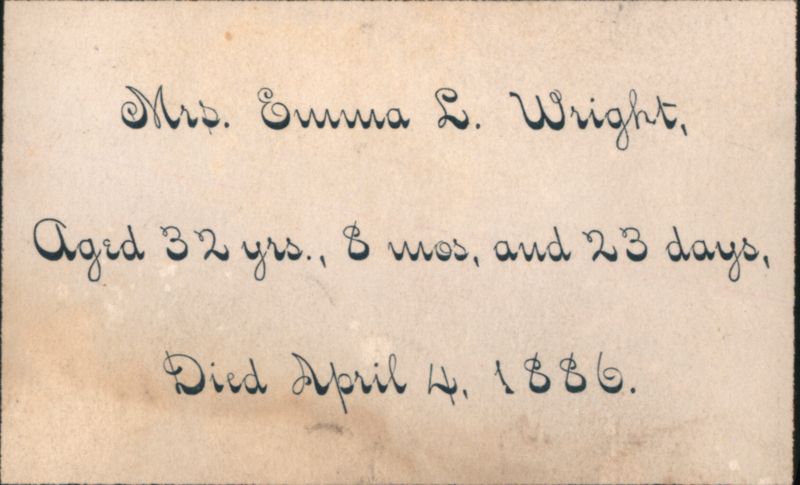 Mrs. Emma L. Wright,
Aged 32 yrs., 8 mos, and 23 days,
Died April 4, 1886.